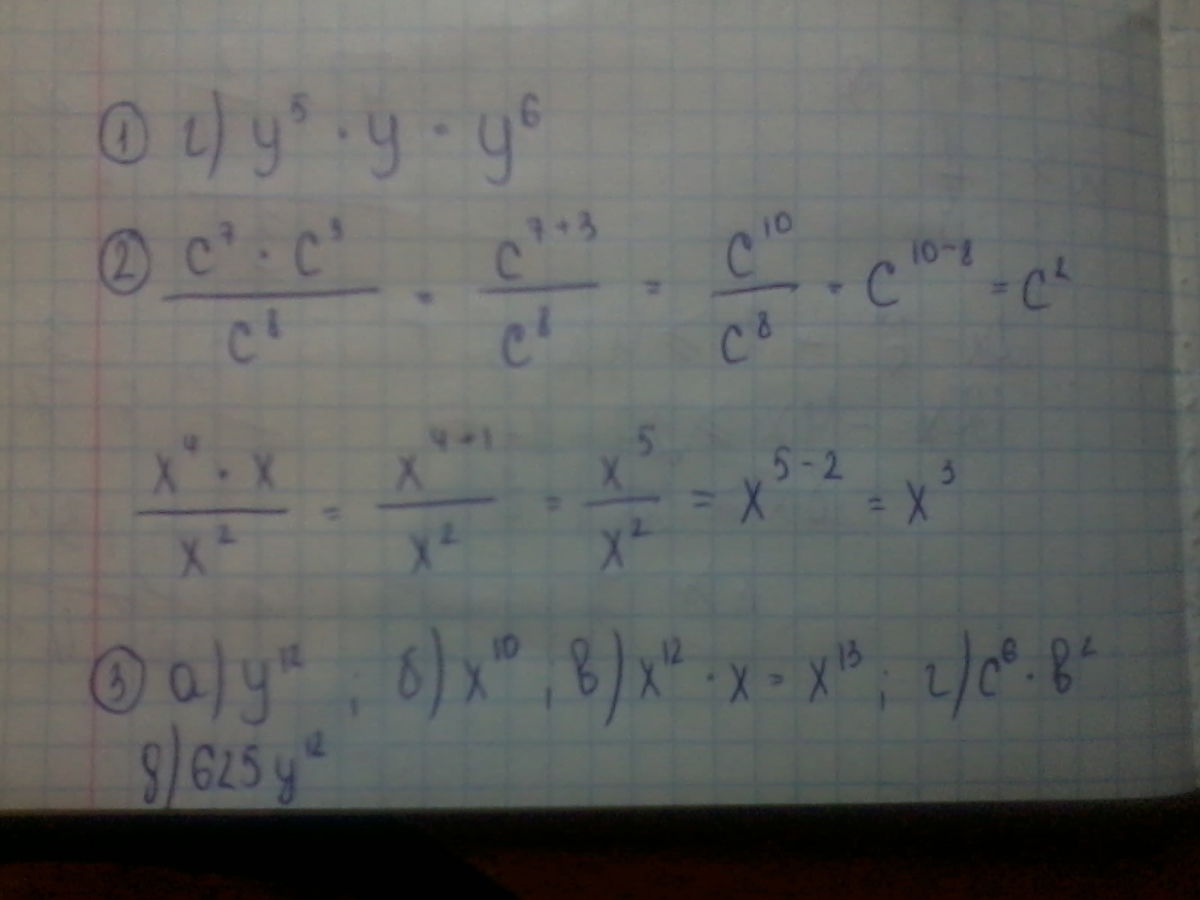 ① г) y⁵ · y = y⁶
② (c⁷ · c³)/c⁸ = c⁷⁺³/c⁸ = c¹⁰/c⁸ = c¹⁰⁻⁸ = c²
(x⁴ · x)/x² = x⁴⁺¹/x² = x⁵/x² = x⁵⁻² = x³
③ а) y¹² ; б) x¹⁰ ; в) x¹² · x = x¹³ ; г) c⁶ · в²
д) 625y¹²